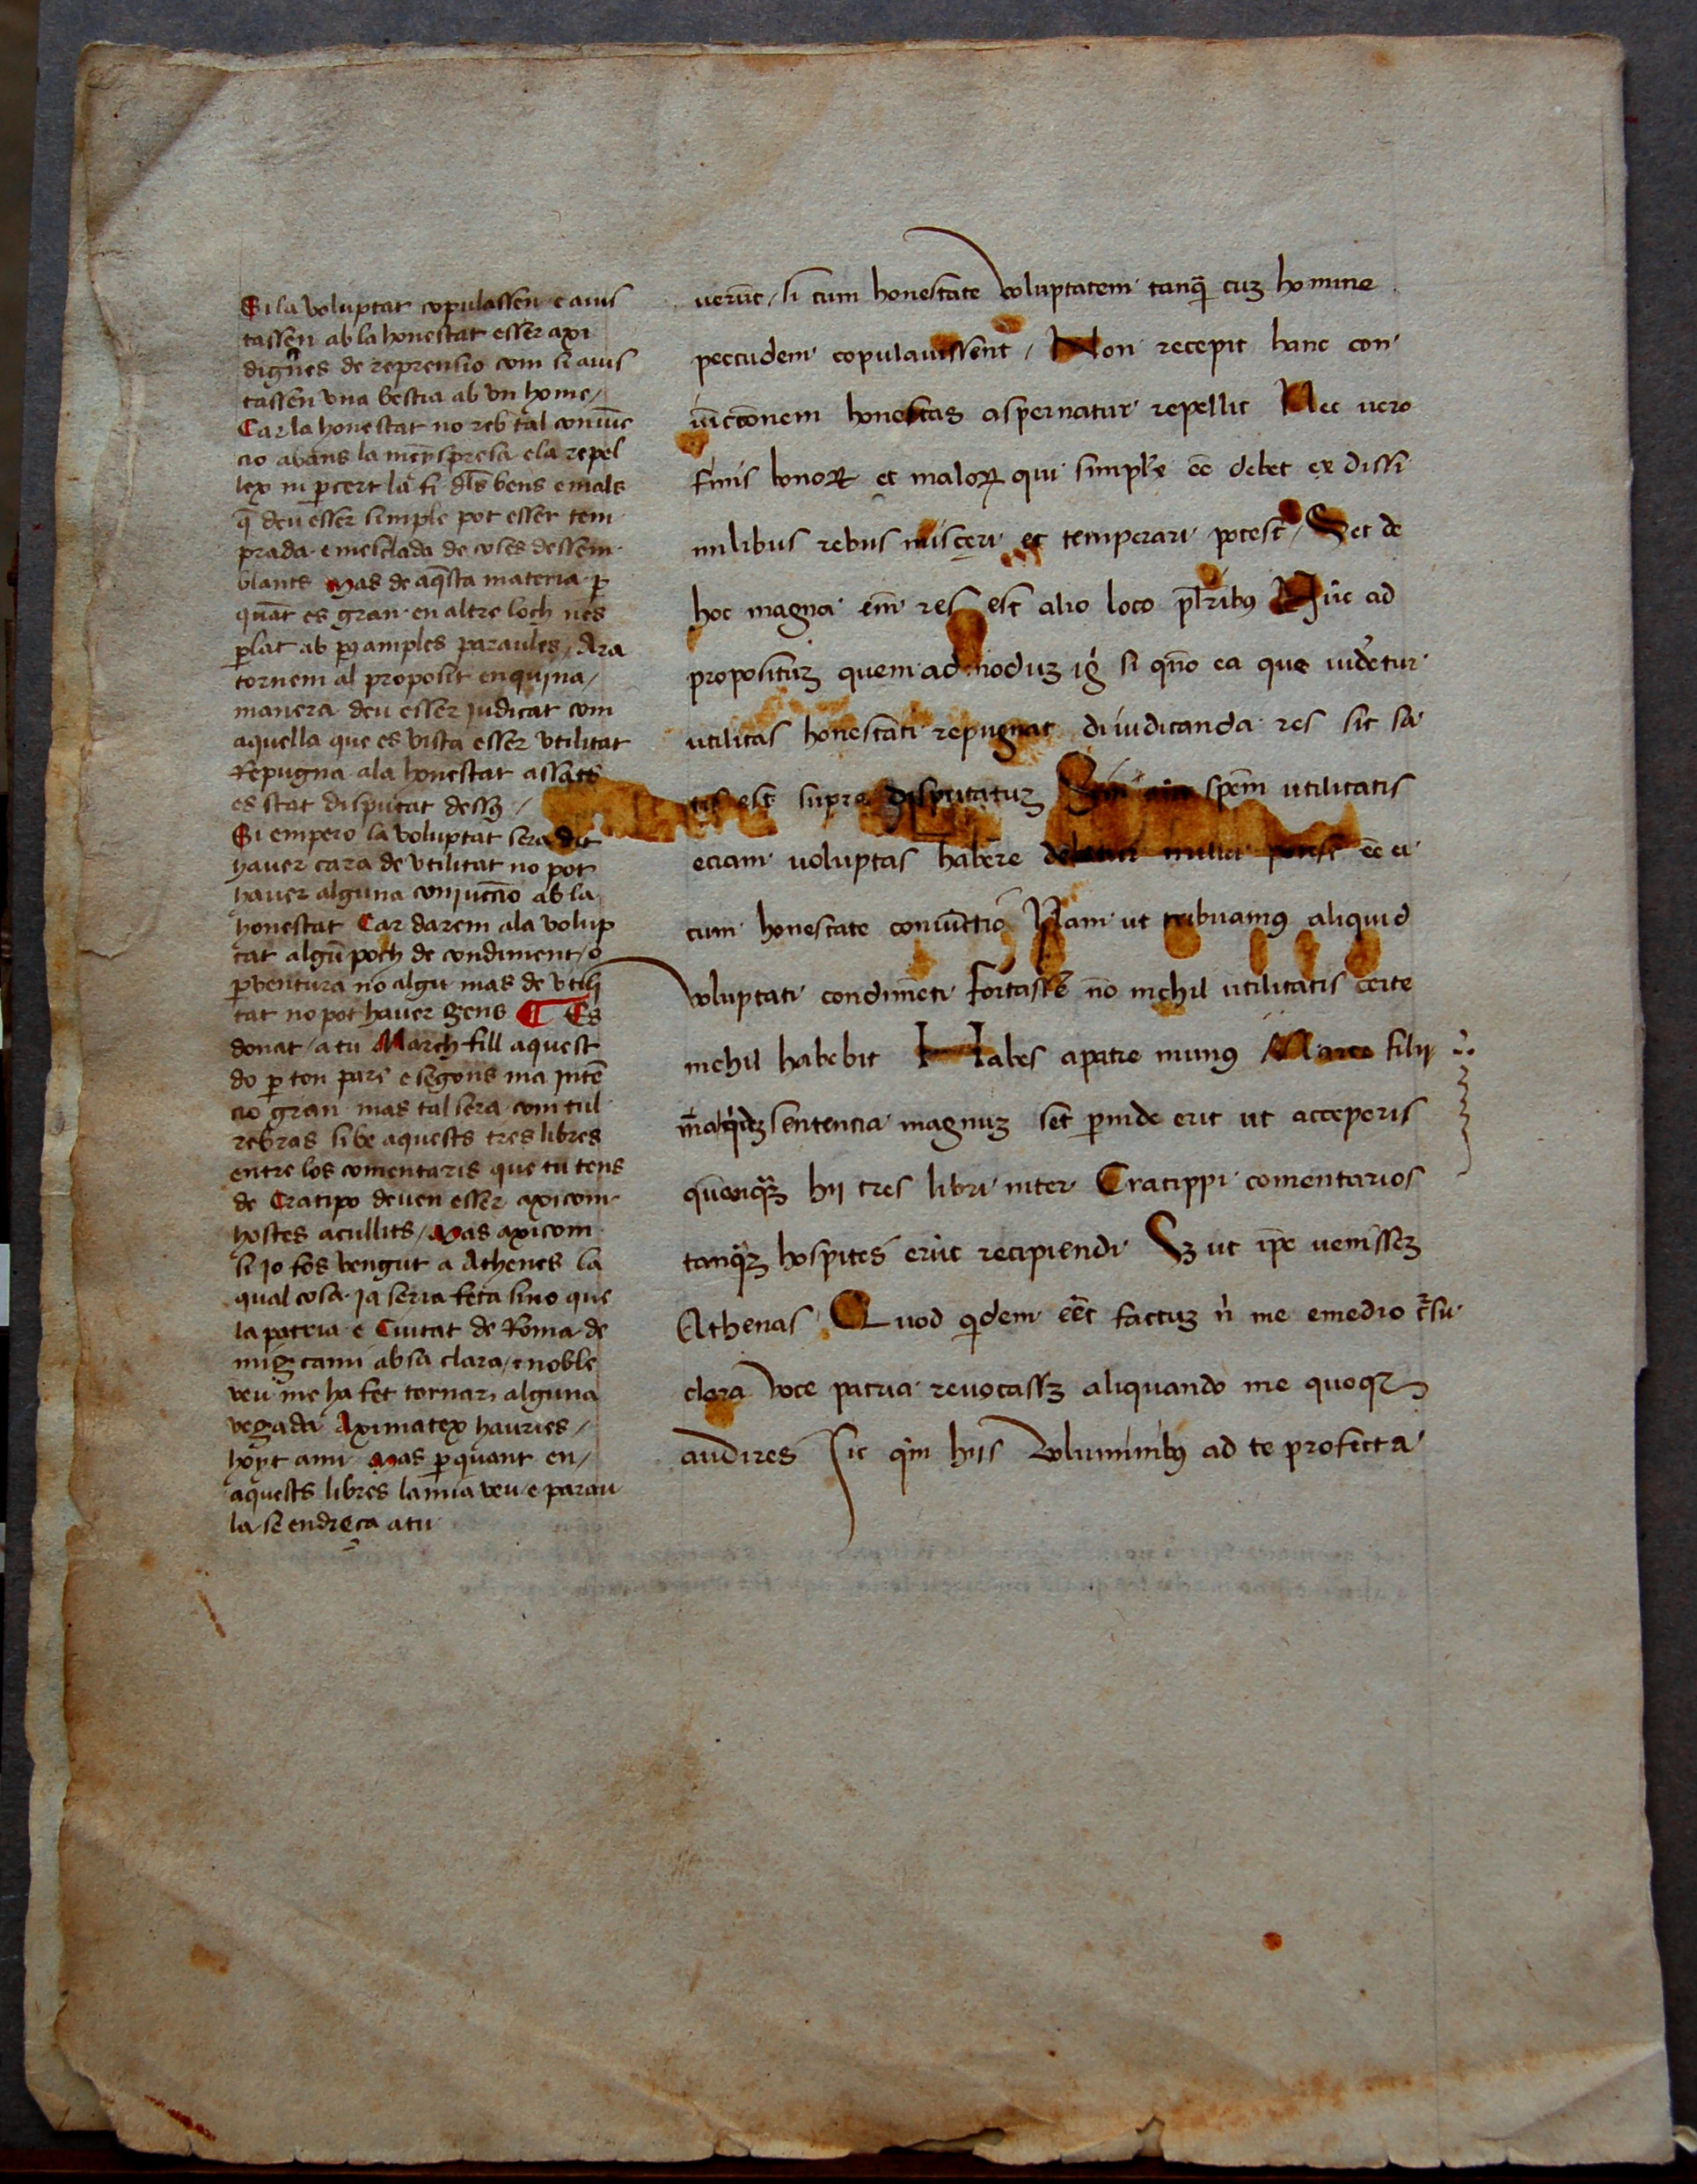 Si la voluptat copulassen e aius
tassen ab la honestat esser axi
dignes de reprensio com si aius
tassen vna bestia ab vn home /
Car la honestat no reb tal coniūc
cio abans la meyspresa e la repel
lex ni ꝑ cert la fi dls̄ bens e mals
q̄ deu esser simple pot esser tem
prada e mesclada de coses dessem
blants Mas de aq̄sta materia ꝑ
quāt es gran en altre loch nes
ꝑlat ab pͥ amples paraules / Ara
tornem al proposit en quina /
manera deu esser judicat com
aquella que es vista esser vtilitat
Repugna a la honestat assats
es stat disputat dessꝫ /
Si empero la voluptat sera dit
hauer cara de vtilitat no pot
hauer alguna conjuccio ab la
honestat Car darem a la volup
tat algū poch de condiment / o
ꝑventura no algu mas de vtili
tat no pot hauer gens ¶ Es
donat / a tu March fill aquest
do ꝑ ton pare e segons ma jntē
cio gran mas tal sera com tul
rebras si be aquests tres libres
entre los comentaris que tu tens
de Cratipo deuen esser axi com
hostes acullits / Mas axi com
si jo fos vengut a Athenes la
qual cosa ja seria feta sino que
la patria e Ciutat de Roma de
mig cami ab sa clara / e noble
veu me ha fet tornar alguna
vegada Aximatex hauries /
hoyt a mi Mas ꝑ quant en /
aquests libres la mia veu e parau
la se endreça a tu
uerūt / si cum honestate voluptatem tanq̄ cuꝫ homine
pecudem copulauissent / Non recepit hanc con
iūctōnem honestas aspernatur repellit Nec uero
finis bonoꝝ et maloꝝ qui simplx̄ eē debet ex dissi
milibus rebus misceri et temperari potest / Set de
hoc magna em̄ res est alio loco pl̄ribꝰ Nūc ad
propositūꝫ quem ad moduꝫ ig̊ si qn̄o ea que uidetur
utilitas honestati repugnat diiudicanda res sit sa
tis est supra disputatuꝫ Sin spem̄ utilitatis
eciam uoluptas habere eē ei
cum honestate coniūttio Nam ut tribuamꝰ aliquid
voluptati condimēti fortasse nō nichil utilitatis certe
nichil habebit Habes a patre munꝰ Marce filij
mā q̇deꝫ sentencia magnuꝫ set ꝑinde erit ut acceperis
quēnq̄ꝫ hij tres libri inter Cratippi comentarios
tanq̄ꝫ hospites erūt recipiendi Sꝫ ut ip̄e uenisseꝫ
Athenas Quod q̇dem eēt factuꝫ nͥ me e medio c̄su
clara voce patria reuocasseꝫ aliquando me quoqꝫ
audires Sic qm̄ hijs voluminibꝰ ad te profecta